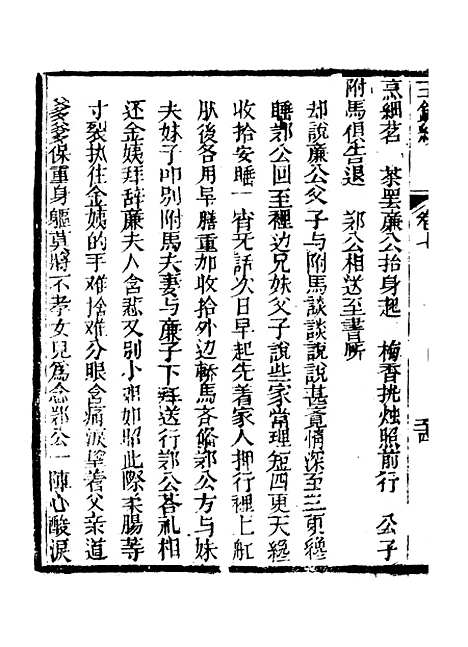 卷七
烹細茗　茶罷廉公抬身起　梅香挑燭照前行　公子
附馬俱告退　郭公相送至書所
却說廉公父子与附馬談談說說甚竟情深至三更纔
睡郭公回至裡边兄妹父子說些家常理短四更天纔
收拾安睡一宵无話次日早起先着家人押行裡上舡
肰後各用早膳重加收拾外边轎馬齐俻郭公方与妹
夫妹子叩別附馬夫妻与廉子下拜送行郭公荅礼相
还金姨拜辞廉夫人含悲又別小姐如照此際柔腸等
寸裂执住金姨的手难捨难分眼含痛淚望着父亲道
爹爹保重身軀莫將不孝女兒爲念郭公一陣心酸淚